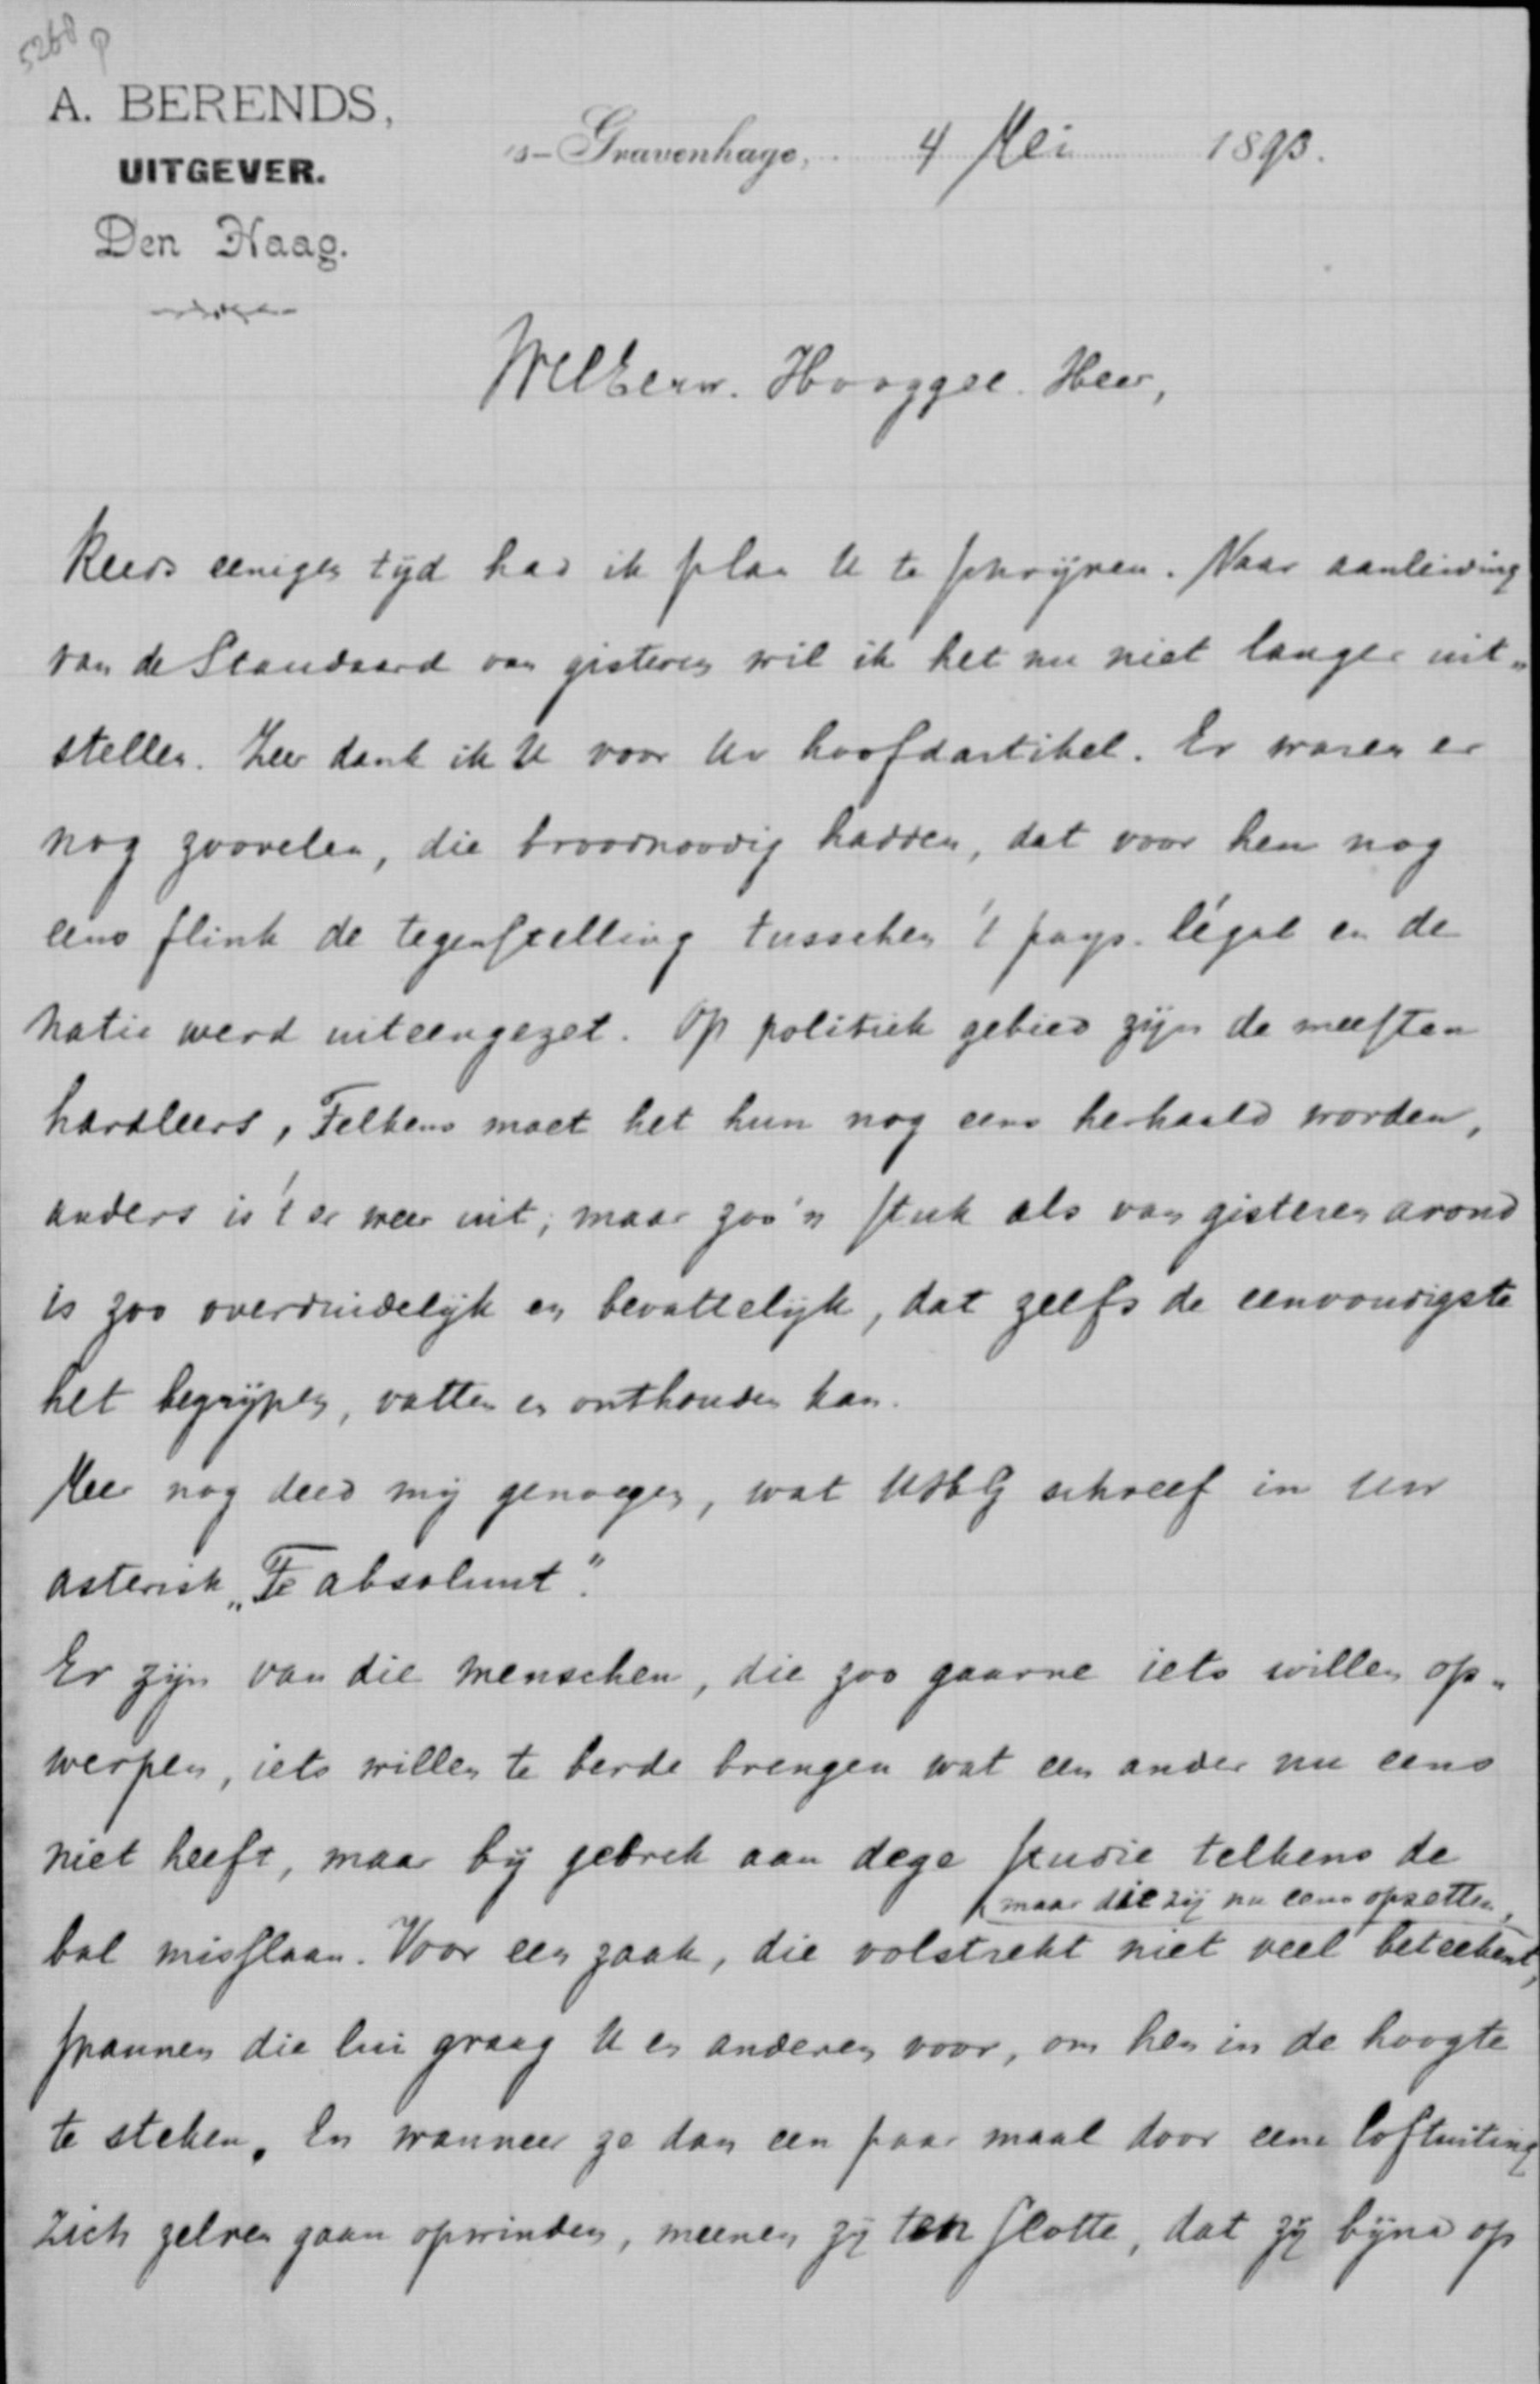 5268 p
A. BERENDS,
UITGEVER.
Den Haag.
's-Gravenhage, 4 Mei 1893.
WelEerw. Hooggel. Heer,
Reeds eenigen tijd had ik plan U te schrijven. Naar aanleiding
van de Standaard van gisteren wil ik het nu niet langer uit-
stellen. Zeer dank ik U voor Uw hoofdartikel. Er waren er
nog zoovelen, die broodnoodig hadden, dat voor hen nog
eens flink de tegenstelling tusschen 't pays légal en de
natie werd uiteengezet. Op politiek gebied zijn de meesten
hardleers, Telkens moet het hun nog eens herhaald worden,
anders is 't er weer uit; maar zoo'n stuk als van gisteren avond
is zoo overduidelijk en bevattelijk, dat zelfs de eenvoudigste
het begrijpen, vatten en onthouden kan.
Meer nog deed mij genoegen, wat UHG schreef in Uw
asterisk „Te absoluut".
Er zijn van die menschen, die zoo gaarne iets willen op-
werpen, iets willen te berde brengen wat een ander nu eens
niet heeft, maar bij gebrek aan dege studie telkens de
maar die zij nu eens opzetten,
bal misslaan. Voor een zaak, die volstrekt niet veel beteekent,
spannen die lui graag U en anderen voor, om hen in de hoogte
te steken. En wanneer ze dan een paar maal door eene loftuiting
zich zelven gaan opwinden, meenen zij ten slotte, dat zij bijna op